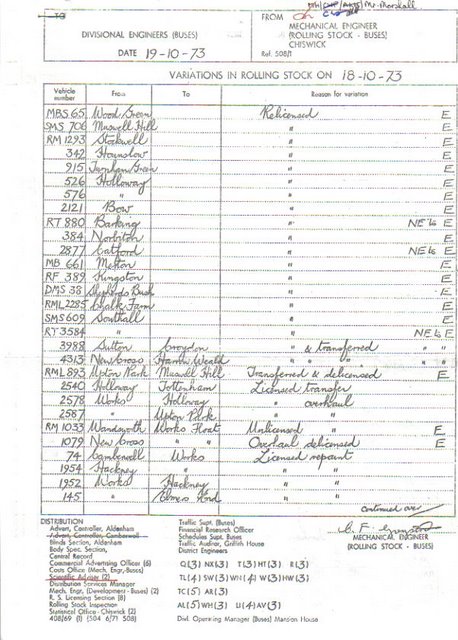 TO
DIVISIONAL ENGINEERS (BUSES)
DATE 19-10-73
Mr. Marshall
FROM
MECHANICAL ENGINEER
(ROLLING STOCK - BUSES)
CHISWICK
Ref. 508/1
VARIATIONS IN ROLLING STOCK ON 18-10-73
Vehicle number From To Reason for variation
MBS 65 Wood Green Relicensed E
SMS 706 Muswell Hill " E
RM 1293 Stockwell " E
342 Hounslow " E
915 Turnham Green " E
526 Holloway " E
576 " " E
2121 Bow " E
RT 880 Barking " NE to E
384 Norbiton " E
2877 Catford " NE to E
MB 661 Merton " E
RF 389 Kingston " E
DMS 38 Shepherds Bush " E
RML 2285 Chalk Farm " E
SMS 609 Southall " E
RT 3584 " " NE to E
3988 Sutton Croydon " & transferred " "
4313 New Cross Harrow Weald " " " " "
RML 893 Upton Park Muswell Hill Transferred & delicensed E
2540 Holloway Tottenham Licensed transfer
2578 Works Holloway " overhaul
2587 " Upton Park " "
RM 1033 Wandsworth Works Float Unlicensed " E
1079 New Cross " " Overhaul delicensed E
74 Camberwell Works Licensed repaint
1954 Hackney " " "
1952 Works Hackney " "
145 " Elmers End " "
continued over
DISTRIBUTION
Advert. Controller, Aldenham
Advert. Controller, Camberwell
Blinds Section, Aldenham
Body Spec. Section,
Central Record
Commercial Advertising Officer (6)
Costs Office (Mech. Engr. Buses)
Scientific Adviser (2)
Distribution Services Manager
Mech. Engr. (Development - Buses) (2)
R. S. Licensing Section (8)
Rolling Stock Inspection
Statistical Office - Chiswick (2)
408/69 (1) (504 6/71 508)
Traffic Supt. (Buses)
Financial Research Officer
Schedules Supt. Buses
Traffic Auditor, Griffith House
District Engineers
Q(3) NX(3) T(3) HT(3) R(3)
TL(4) SW(3) WH(4) W(3) HW(3)
TC(5) AR(3)
AL(5) WH(3) LI(4) AV(3)
Divl. Operating Manager (Buses) Mansion House
MECHANICAL ENGINEER
(ROLLING STOCK - BUSES)